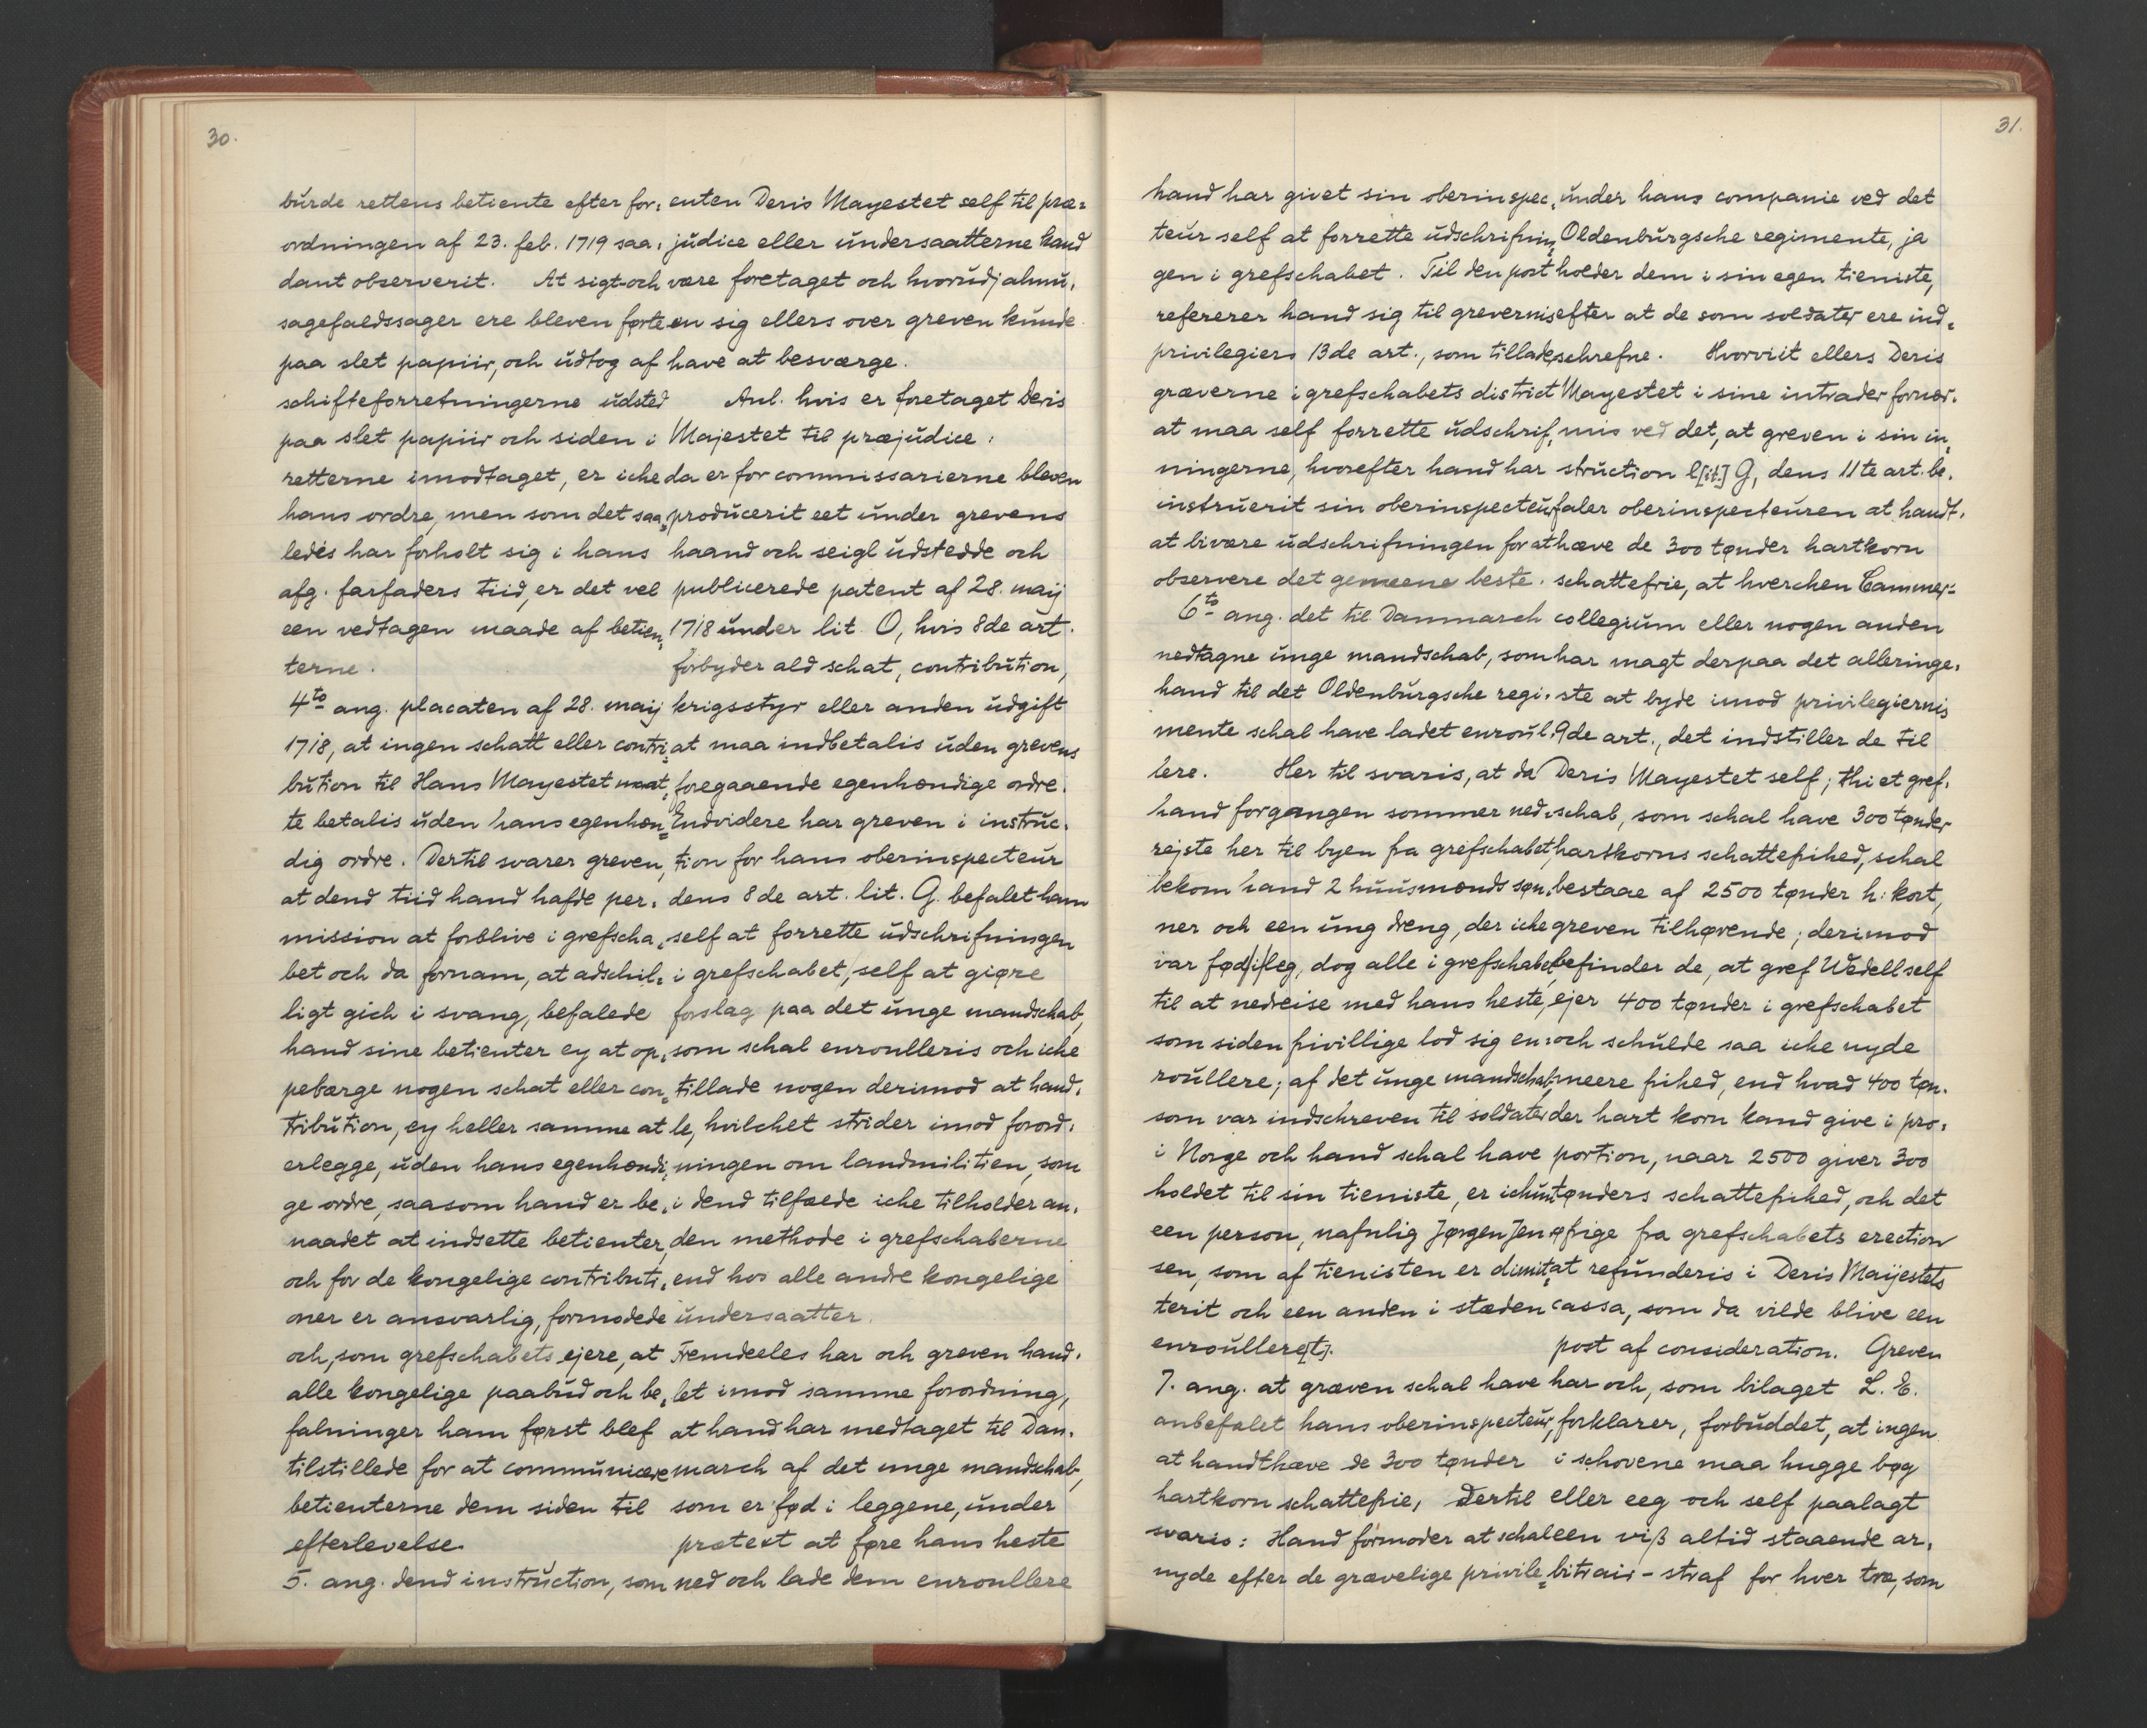 30.
burde rettens betiente efter for=
ordningen af 23. feb. 1719 saa=
dant observerit. At sigt- och
sagefaldssager ere bleven førte
paa slet papiir, och udtog af
schifteforretningerne udsted
paa slet papiir och siden i
retterne imodtaget, er iche
hans ordre, men som det saa=
ledes har forholt sig i hans
afg. farfaders tiid, er det vel
een vedtagen maade af betien=
terne.
4to ang. placaten af 28. maij
1718, at ingen schatt eller contri=
bution til Hans Mayestet maat=
te betalis uden hans egenhæn=
dig ordre. Dertil svarer greven,
at dend tiid hand hafde per=
mission at forblive i grefscha=
bet och da fornam, at adschil=
ligt gich i svang, befalede
hand sine betienter ey at op=
pebærge nogen schat eller con=
tribution, ey heller samme at
erlegge, uden hans egenhændi=
ge ordre, saasom hand er be=
naadet at indsette betienter,
och for de kongelige contributi=
oner er ansvarlig, formodede
och, som grefschabets ejere, at
alle kongelige paabud och be=
falninger ham først blef
tilstillede for at communicere
betienterne dem siden til
efterlevelse.
5. ang. dend instruction, som
enten Deris Mayestet self til præ=
judice eller undersaatterne kand
være foretaget och hvorudj almu=
en sig ellers over greven kunde
have at besværge.
Anl. hvis er foretaget Deris
Majestet til præjudice:
da er for commissarierne bleven
producerit eet under grevens
haand och seigl udstedde och
publicerede patent af 28. maij
1718 under lit. O, hvis 8de art.
forbyder ald schat, contribution,
krigsstyr eller anden udgift
at maa indbetalis uden grevens
foregaaende egenhændige ordre.
Endvidere har greven i instruc=
tion for hans oberinspecteur
dens 8de art. lit. G. befalet ham
self at forrette udschrifningen
i grefschabet, self at giøre
forslag paa det unge mandschab,
som schal enroulleris och iche
tillade nogen derimod at hand=
le, hvilchet strider imod forord=
ningen om landmilitien, som
i dend tilfælde iche tilholder an=
den methode i grefschaberne
end hos alle andre kongelige
undersaatter.
Fremdeeles har och greven hand=
let imod samme forordning,
at hand har medtaget til Dan=
march af det unge mandschab,
som er fød i leggene, under
prætext at føre hans heste
ned och lade dem enroullere
31.
hand har givet sin oberinspec=
teur self at forrette udschrifnin=
gen i grefschabet. Til den post
refererer hand sig til grevernis
privilegiers 13de art., som tillader
græverne i grefschabets district
at maa self forrette udschrif=
ningerne, hvorefter hand har
instruerit sin oberinspecteur
at bivære udschrifningen for at
observere det gemeene beste.
6to ang. det til Danmarch
nedtagne unge mandschab, som
hand til det Oldenburgsche regi=
mente schal have ladet enroul=
lere. Her til svaris, at da
hand forgangen sommer ned=
rejste her til byen fra grefschabet,
bekom hand 2 huusmænds søn=
ner och een ung dreng, der iche
var fød [i] leg, dog alle i grefschabet
til at nedreise med hans heste,
som siden frivillige lod sig en=
roullere; af det unge mandschab,
som var indschreven til soldater
i Norge och hand schal have
holdet til sin tieniste, er ichun
een person, nafnlig Jørgen Jen=
sen, som af tienisten er dimit=
terit och een anden i stæden
enroullere[t].
7. ang. at græven schal have
anbefalet hans oberinspecteur,
at handthæve de 300 tønder
hartkorn schattefrie, dertil
svaris: Hand formoder at schal
nyde efter de grævelige privile=
under hans companie ved det
Oldenburgsche regimente, ja
holder dem i sin egen tieniste,
efter at de som soldater ere ind=
schrefne. Hvorviit ellers Deris
Mayestet i sine intrader fornær=
mis ved det, at greven i sin in=
struction l[it.] G, dens 11te art. be=
faler oberinspecteuren at handt=
hæve de 300 tønder hartkorn
schattefrie, at hverchen Cammer=
collegium eller nogen anden
har magt derpaa det alleringe=
ste at byde imod privilegiernis
9de art., det indstiller de til
Deris Mayestet self; thi et gref=
schab, som schal have 300 tønder
hartkorns schattefrihed, schal
bestaae af 2500 tønder h: kort,
greven tilhørende; derimod
befinder de, at gref Wedell self
ejer 400 tønder i grefschabet
och schulde saa iche nyde
meere frihed, end hvad 400 tøn=
der hart korn kand give i pro=
portion, naar 2500 giver 300
tønders schattefrihed, och det
øfrige fra grefschabets erection
at refunderis i Deris Maijestets
cassa, som da vilde blive een
post af consideration. Greven
har och, som bilaget L. E.
forklarer, forbuddet, at ingen
i schovene maa hugge bøg
eller eeg och self paalagt
een viß altid staaende ar=
bitrair-straf for hver træ, som